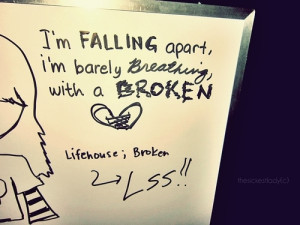 I'm FALLING apart,
i'm barely Breathing,
with a BROKEN
Lifehouse; Broken
LSS!!